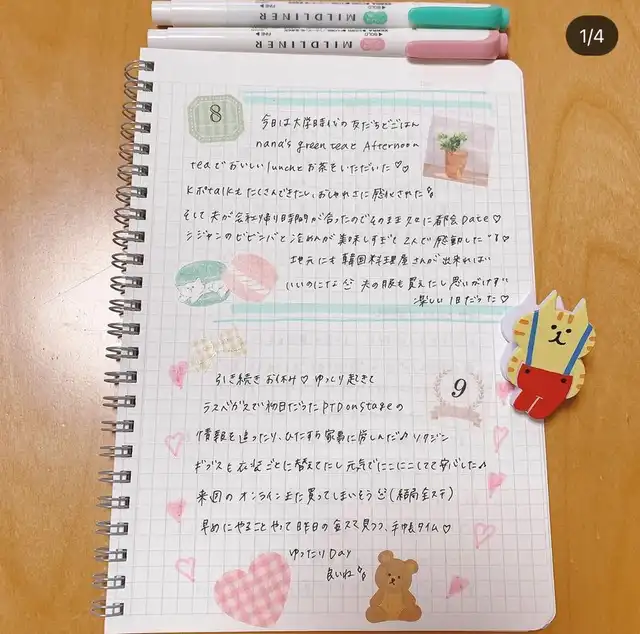 1/4
MILDLINER
MILDLINER
8
今日は大学時代の友だちとごはん
nana's green teaと Afternoon
teaでおいしいlunchとお茶をいただいた♡♡
K-Potalkもたくさんできたし、おしゃれさに感化された
そして夫が会社帰り時間が合ったのでそのまま久々に都会Date♡
シジャンのビビンバと冷めんが美味しすぎて2人で感動した
地元にも韓国料理屋さんが出来れば
いいのにな 夫の服も買えたし思いがけず
楽しい1日だった♡
9
引き続きお休み♡ ゆっくり起きて
ラスベガスで初日だったPTD on stageの
情報を追ったり、ひたすら家事に勤しんだ♪
ギプスも衣装ごとに替えてたし元気でにこにこしてて安心した♪
来週のオンラインまた買ってしまいそう(結局全ステ)
早めにやることやって昨日の金スマ見つつ、手帳タイム♡
ゆったりDay
良いね